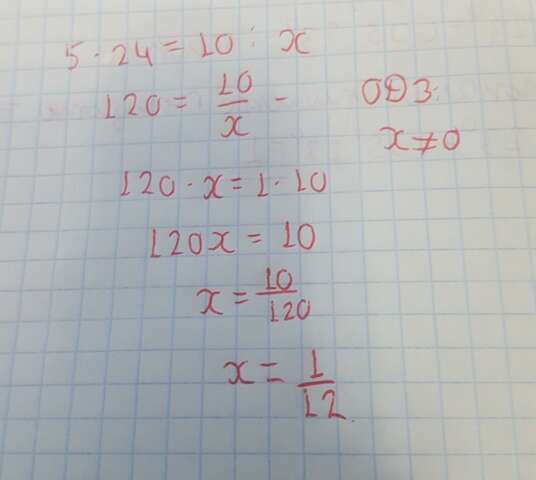 5 · 24 = 10 : x
120 = 10/x - ОДЗ:
x ≠ 0
120 · x = 1 · 10
120x = 10
x = 10/120
x = 1/12.